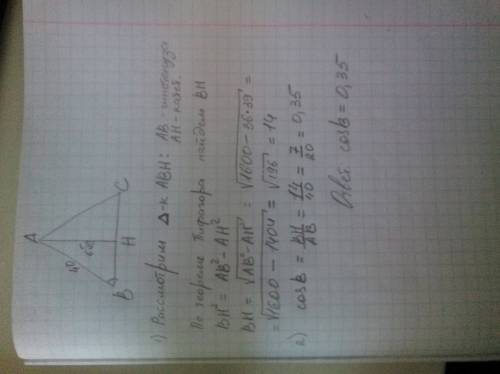 A
40
B
H
C
1) Рассмотрим Δ-к ABH: AB - гипотенуза
AH - катет.
По теореме Пифагора найдем BH
BH² = AB² - AH²
BH = √AB² - AH² = √1600 - 36·39 =
= √1600 - 1404 = √196 = 14
2) cosB = BH/AB = 14/40 = 7/20 = 0,35
Ответ: cosB = 0,35